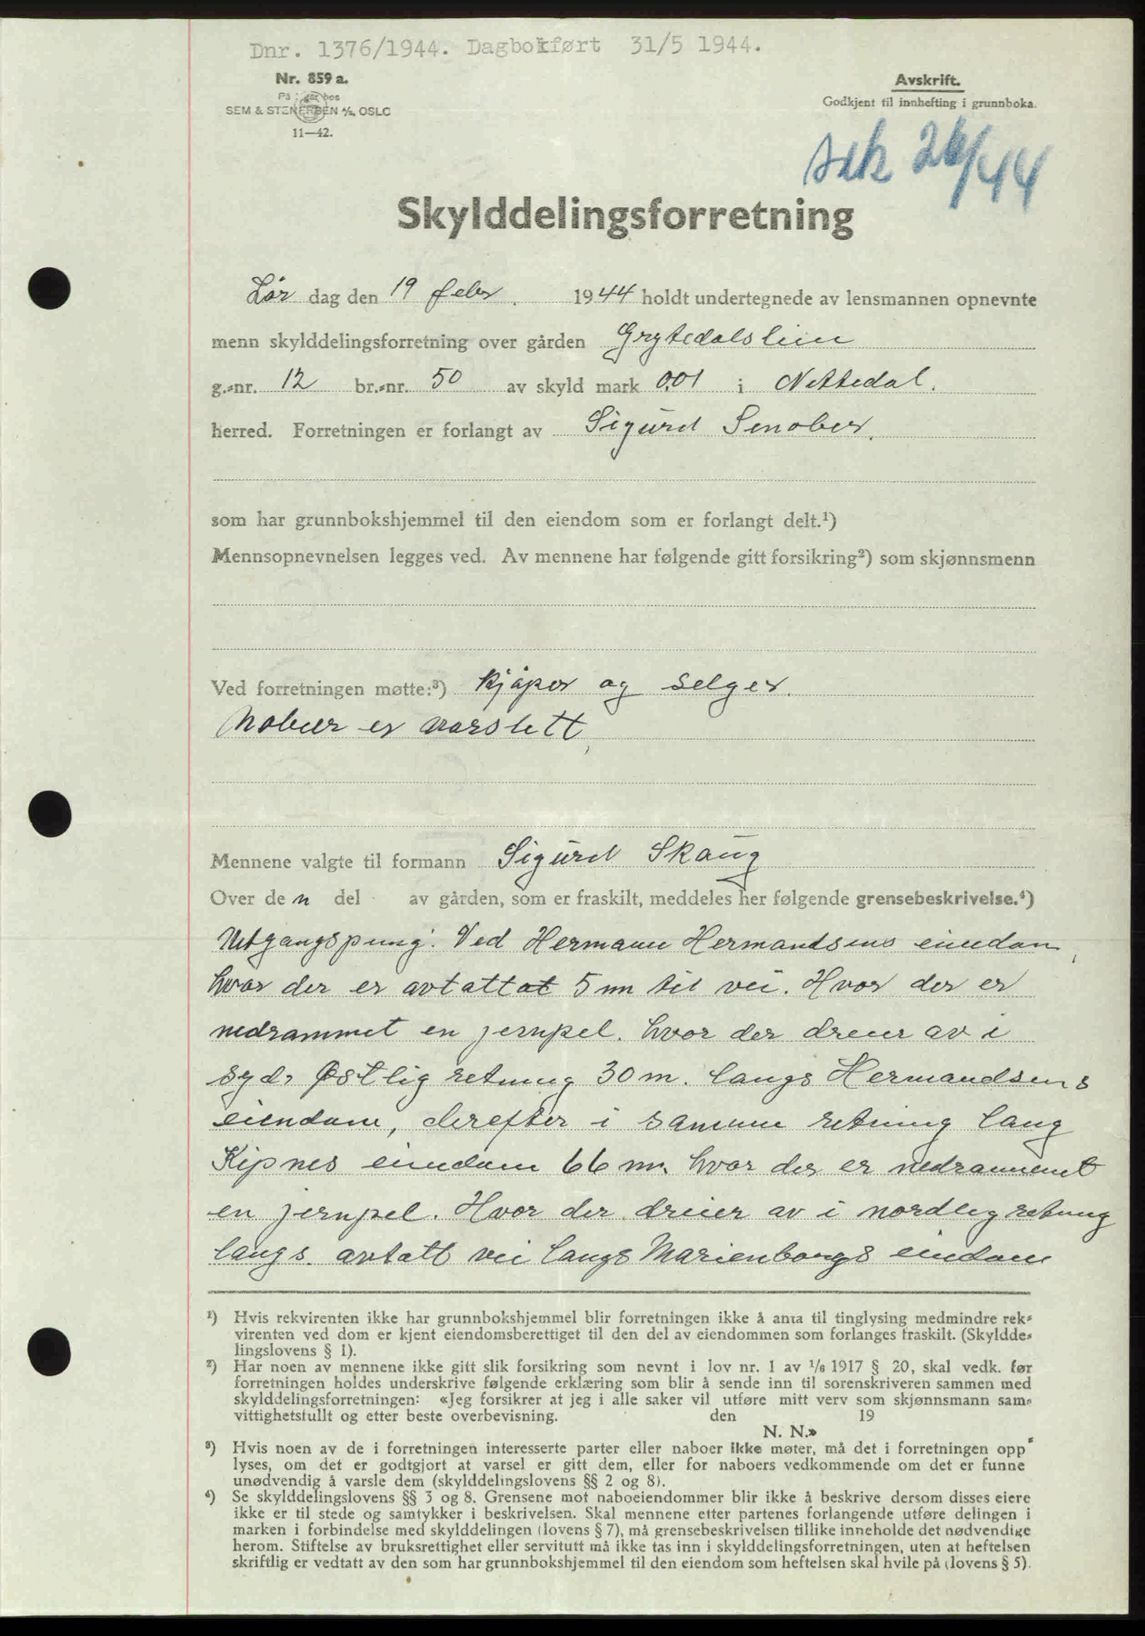 Dnr. 1376/1944. Dagbokført 31/5 1944.
Nr. 859 a.
SEM & STENERSEN A/S, OSLO
11—42.
Avskrift.
Godkjent til innhefting i grunnboka.
26/44
Skylddelingsforretning
Lør dag den 19 febr. 1944 holdt undertegnede av lensmannen opnevnte
menn skylddelingsforretning over gården Grytedalslien
g.-nr. 12 br.-nr. 50 av skyld mark 0,01 i Nittedal.
herred. Forretningen er forlangt av Sigurd Senober.
som har grunnbokshjemmel til den eiendom som er forlangt delt.¹)
Mennsopnevnelsen legges ved. Av mennene har følgende gitt forsikring²) som skjønnsmenn
Ved forretningen møtte:³) Kjøper og selger.
Nabuer er varslett,
Mennene valgte til formann Sigurd Skaug
Over den del av gården, som er fraskilt, meddeles her følgende grensebeskrivelse.⁴)
Utgangspung: Ved Hermann Hermandsens eiendom,
hvor der er avtattat 5 m til vei. Hvor der er
nedrammet en jernpel. hvor der dreier av i
syd, Østlig retning 30 m. langs Hermandsens
eiendom, derefter i samme retning lang
Kipnes eiendom 66 m. hvor der er nedrammet
en jernpel. Hvor der dreier av i nordlig retning
langs. avtatt vei langs Marienborgs eiendom
¹) Hvis rekvirenten ikke har grunnbokshjemmel blir forretningen ikke å anta til tinglysing medmindre rek-
virenten ved dom er kjent eiendomsberettiget til den del av eiendommen som forlanges fraskilt. (Skyldde-
lingslovens § 1).
²) Har noen av mennene ikke gitt slik forsikring som nevnt i lov nr. 1 av 1/6 1917 § 20, skal vedk. før
forretningen holdes underskrive følgende erklæring som blir å sende inn til sorenskriveren sammen med
skylddelingsforretningen: «Jeg forsikrer at jeg i alle saker vil utføre mitt verv som skjønnsmann sam-
vittighetsfullt og etter beste overbevisning. den 19
N. N.»
³) Hvis noen av de i forretningen interesserte parter eller naboer ikke møter, må det i forretningen opp-
lyses, om det er godtgjort at varsel er gitt dem, eller for naboers vedkommende om det er funne
unødvendig å varsle dem (skylddelingslovens §§ 2 og 8).
⁴) Se skylddelingslovens §§ 3 og 8. Grensene mot naboeiendommer blir ikke å beskrive dersom disses eiere
ikke er til stede og samtykker i beskrivelsen. Skal mennene etter partenes forlangende utføre delingen i
marken i forbindelse med skylddelingen (lovens § 7), må grensebeskrivelsen tillike inneholde det nødvendige
herom. Stiftelse av bruksrettighet eller servitutt må ikke tas inn i skylddelingsforretningen, uten at heftelsen
skriftlig er vedtatt av den som har grunnbokshjemmel til den eiendom som heftelsen skal hvile på (lovens § 5).